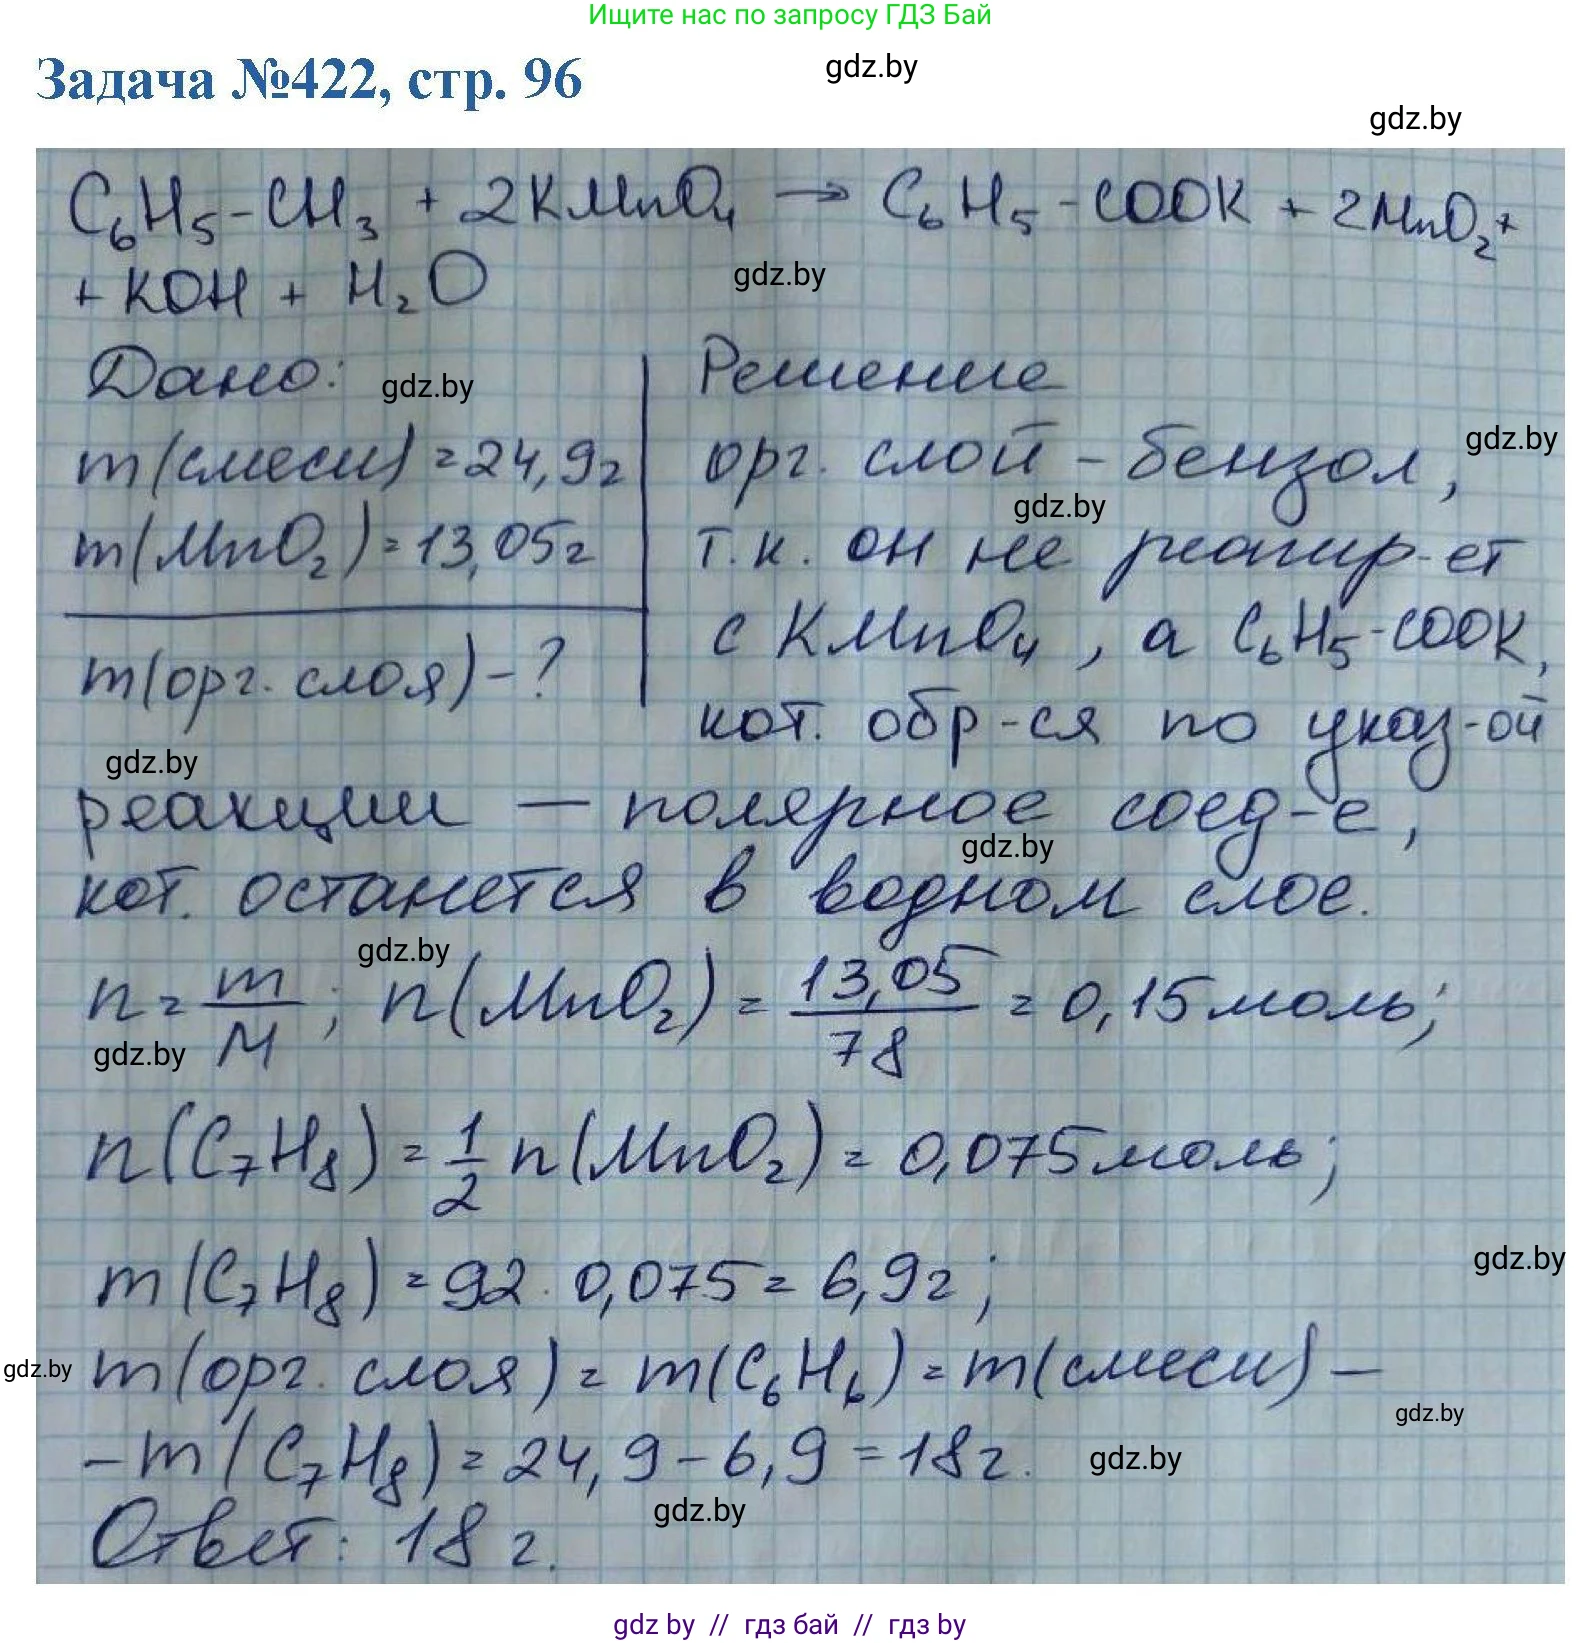 Ищите нас по запросу ГДЗ Бай
Задача №422, стр. 96
gdz.by
gdz.by
C₆H₅-CH₃ + 2KMnO₄ → C₆H₅-COOK + 2MnO₂+
+ KOH + H₂O
gdz.by
Дано:
gdz.by
m(смеси)=24,9г
m(MnO₂)=13,05г
m(орг. слоя)-?
Решение
gdz.by
орг. слой - бензол,
gdz.by
т.к. он не реагир-ет
с KMnO₄, а C₆H₅-COOK,
кот. обр-ся по указ-ой
gdz.by
реакции — полярное соед-е,
gdz.by
кот. останется в водном слое.
gdz.by
n = m/M; n(MnO₂) = 13,05/78 = 0,15моль;
gdz.by
n(C₇H₈) = 1/2 n(MnO₂) = 0,075моль;
gdz.by
m(C₇H₈) = 92 · 0,075 = 6,9г;
gdz.by
m(орг. слоя) = m(C₆H₆) = m(смеси) —
gdz.by
- m(C₇H₈) = 24,9 - 6,9 = 18г.
gdz.by
gdz.by
Ответ: 18 г.
gdz by // гдз бай // гдз by